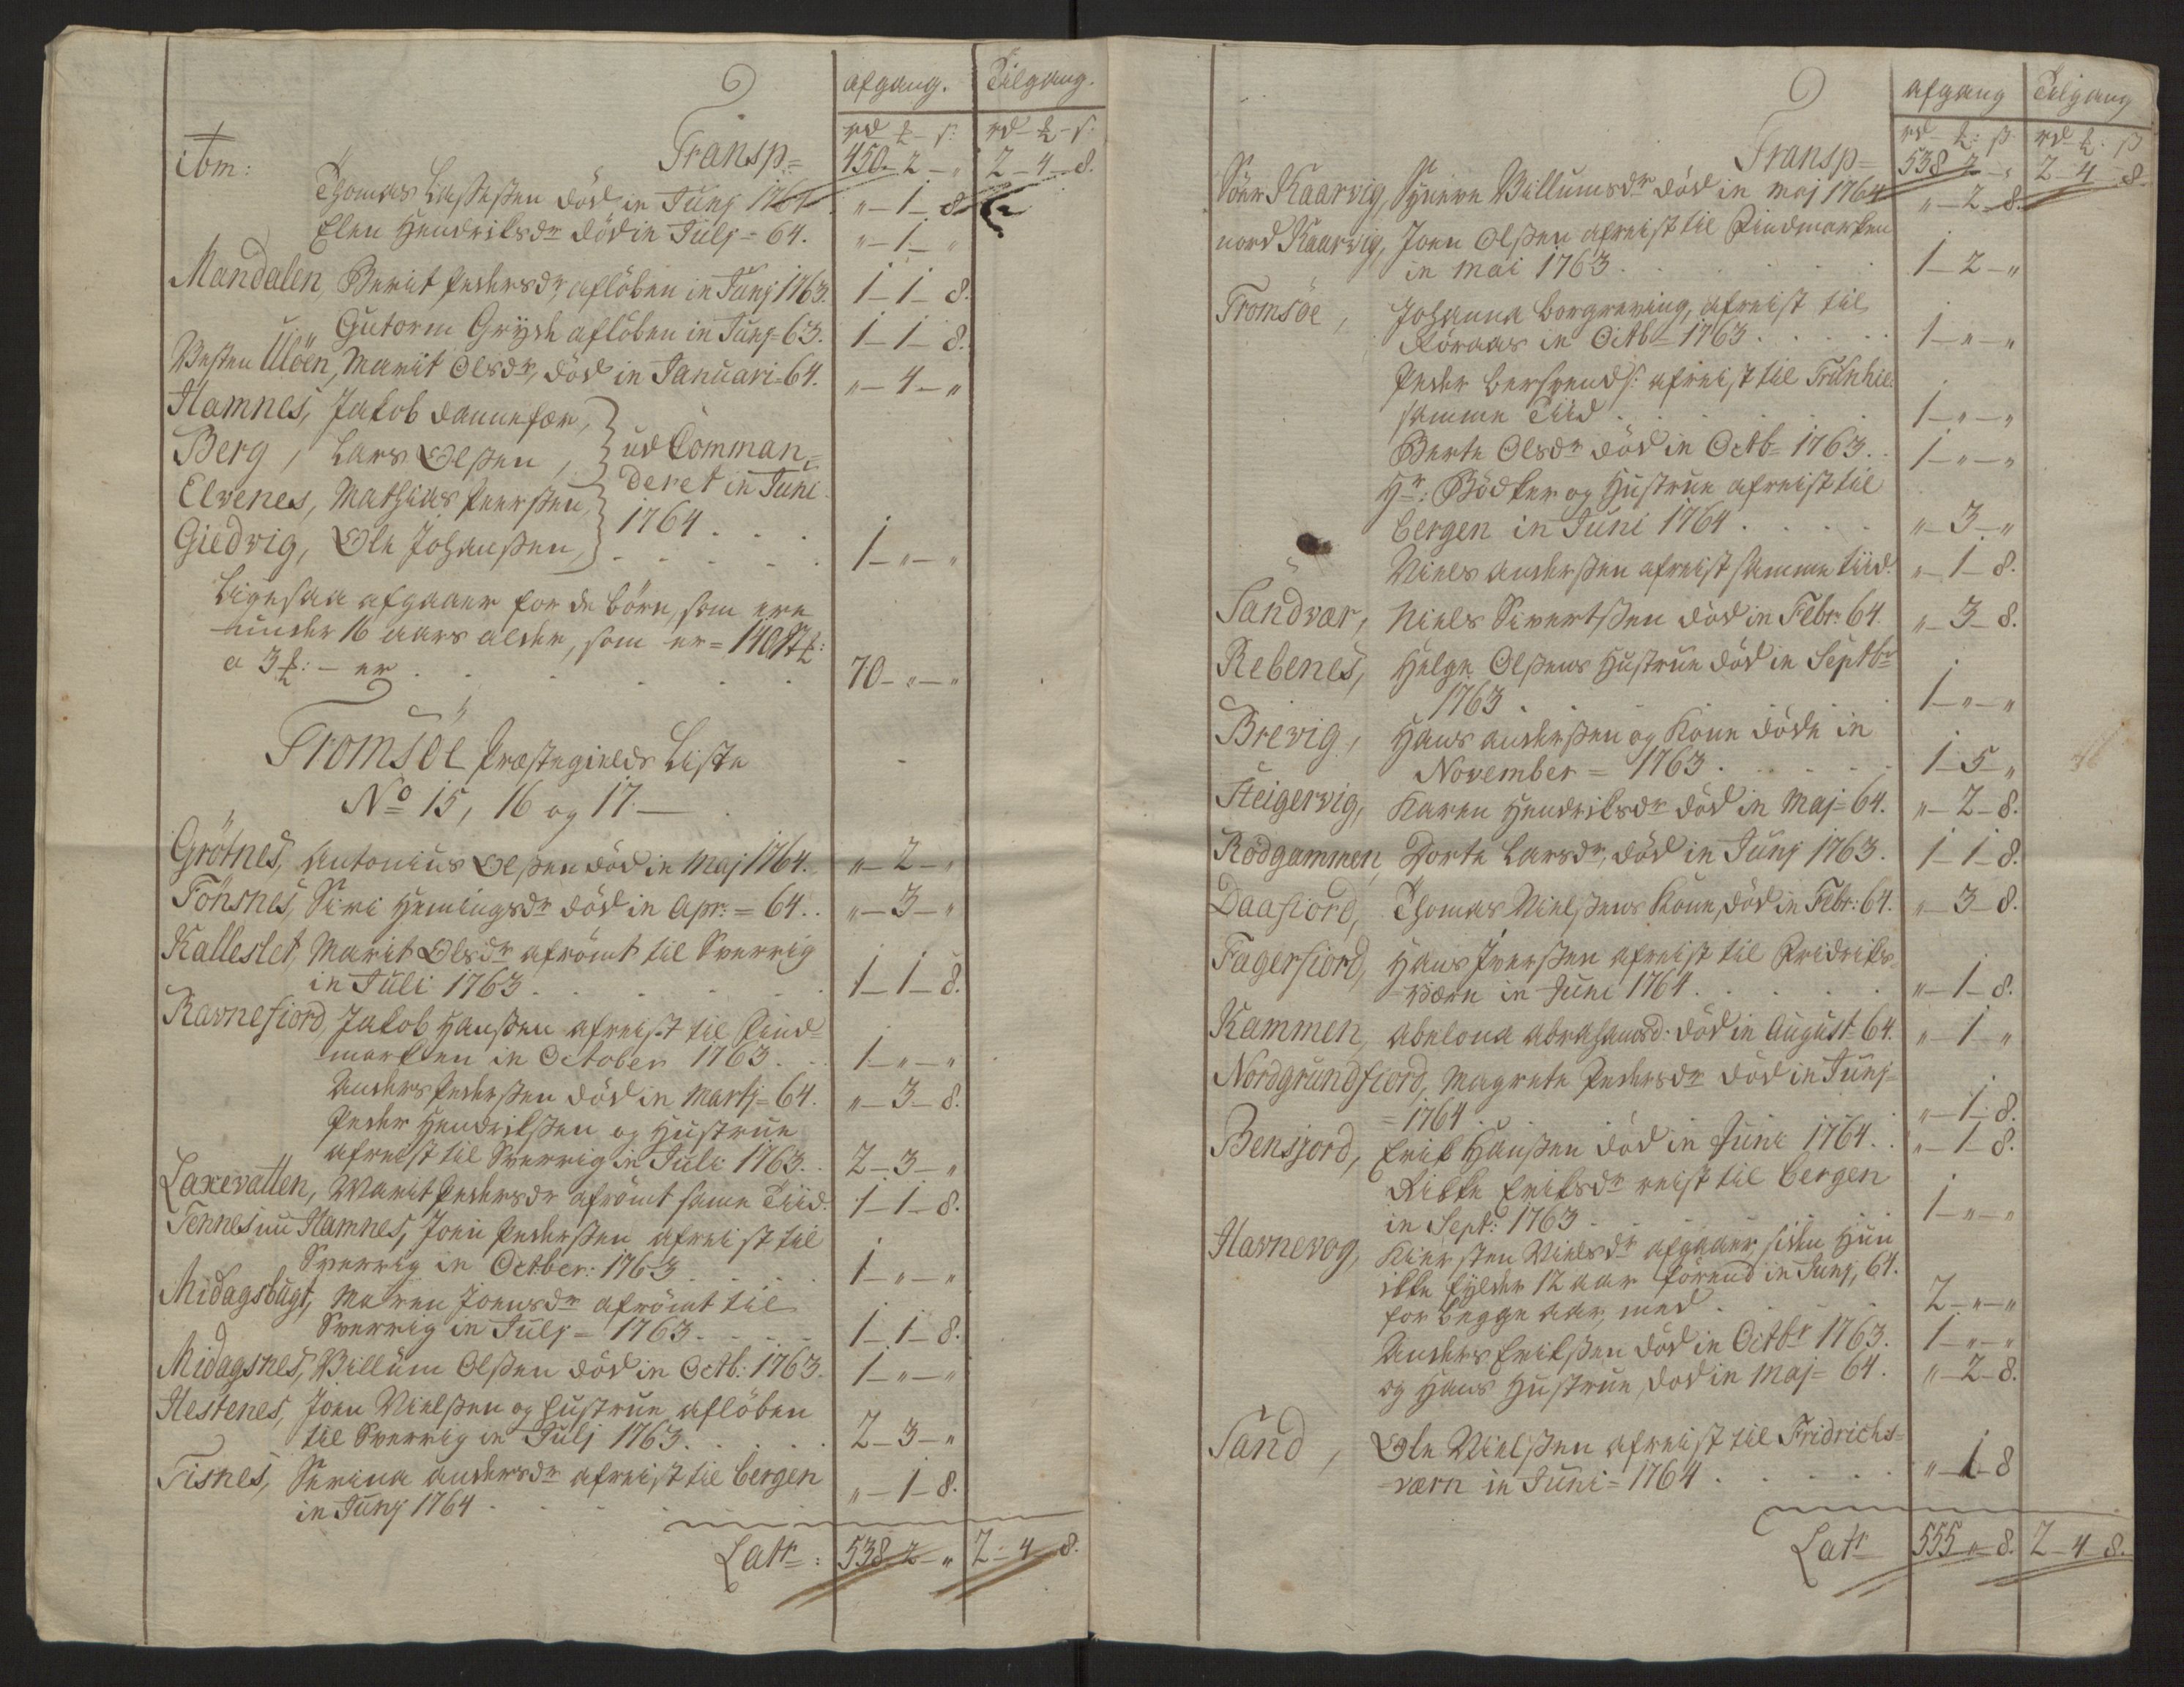 afgang. Tilgang.
rd ℔ - s: rd - ℔ - s:
Transp= 450 - 2 - „ 2 - 4 - 8.
ibm: Thomas Lassesen död in Junj 1764 „ - 1 - 8
Elen Hendriksdr död in Julj = 64. „ - 1 - „
Mandalen, Berit Pedersdr, aflöben in Junj 1763. 1 - 1 - 8.
Gutorm Grysk aflöben in Junj = 63. 1 - 1 - 8.
Westen Ulöen, Marit Olsdr, död in Januari = 64. „ - 4 - „
Hamnes, Jakob Dannefær,
Berg, Lars Olssen, ud Comman=
Elvenes, Mathias Peerssen, deret in Juni
Giedvig, Ole Johanssen, 1764 . . . 1 - „ - „
Ligesaa afgaaer for de börn, som ere
under 16 aars alder, som er = 140 St:
a 3 ℔: - er . . . . . 70 - „ - „
Tromsöe Præstegields Liste
No 15, 16 og 17. —
Grötnes, Antonius Olssen död in Maj 1764. „ - 2 - „
Fönsnes, Siri Hemingsdr död in Apr: = 64. . „ - 3 - „
Kalleslet, Marit Olsdr afrömt til Sverrig
in Juli 1763 . . . . . 1 - 1 - 8.
Ravnefiord, Jakob Hanssen afreist til Find=
marken in October 1763 . . 1 - „ - „
Anders Pederssen död in Martj = 64. „ - 3 - 8.
Peder Hendrikssen og Hustrue
afreist til Sverrig in Juli 1763. . 2 - 3 - „
Laxevatten, Marit Pedersdr afrömt samme Tiid. 1 - 1 - 8.
Tennes nu Hamnes, Joen Pederssen afreist til
Sverrig in Octber: 1763 . . . . 1 - „ - „
Midagsbugt, Maren Joensdr afrömt til
Sverrig in Julj = 1763 . . . . 1 - 1 - 8.
Midagsnes, Villum Olssen död in Octb: 1763. 1 - „ - „
Hestenes, Joen Nielssen og Hustrue aflöben
til Sverrig in Julj 1763. . . . . 2 - 3 - „
Tisnes, Serina Andersdr afreist til bergen
in Junj 1764 . . . . . „ - 1 - 8.
Latr: 538 - 2 - „ 2 - 4 - 8.
afgang Tilgang
rd - ℔: ß rd - ℔: ß
Transp= 538 - 2 - „ 2 - 4 - 8.
Söer Kaarvig, Synnve Villumsdr död in Maj 1764 „ - 2 - 8.
nord Kaarvig, Joen Olssen afreist til Findmarken
in Mai 1763 . . . . . 1 - 2 - „
Tromsöe, Johanna Borgreving, afreist til
Röraas in Octb = 1763 . . . . . 1 - „ - „
Peder Berhrends: afreist til Trunhie:
samme Tiid . . . . . 1 - „ - „
Berte Olsdr död in Octb = 1763. . 1 - „ - „
Hr: Bödker og Hustrue afreist til
Bergen in Juni 1764 . . . . „ - 3 - „
Niels Anderssen afreist samme tiid. „ - 1 - 8.
Sandvær, Niels Sivertssen död in Febr: 64. „ - 3 - 8.
Rebenes, Helge Olssens Hustrue död in Septbr
1763 . . . . . 1 - „ - „
Brevig, Hans Anderssen og Kone döde in
November = 1763 . . . . . 1 - 5 - „
Steigervig, Karen Hendriksdr död in Maj = 64. „ - 2 - 8.
Rödgammen, Dorte Larsdr, död in Junj 1763. 1 - 1 - 8.
Daafiord, Thomas Nielssens Kone, död in Febr: 64. „ - 3 - 8.
Fagerfiord, Hans Iverssen afreist til Fridriks=
værn in Juni 1764 . . . . . „ - 1 - 8.
Kammen, Abelona Abrahamsd: död in August = 64. „ - 1 - „
Nordgrundfiord, Magrete Pedersdr död in Junj =
= 1764 . . . . . „ - 1 - 8.
Bensjord, Erik Hanssen död in Juni 1764. . „ - 1 - 8.
Rikke Eriksdr reist til Bergen
in Sept: 1763 . . . . . 1 - „ - „
Havnevog, Kiersten Nielsdr afgaaer, siden Hun
ikke fylder 12 aar förend in Junj, 64.
for begge aar, med . . . . 2 - „ - „
Anders Erikssen död in Octbr 1763. 1 - „ - „
og Hans Hustrue, död in Maj = 64. „ - 2 - 8.
Sand, Ole Nielssen afreist til Fridrichs=
værn in Juni = 1764 . . . . . „ - 1 - 8
Latr 555 - „ - 8. 2 - 4 - 8.